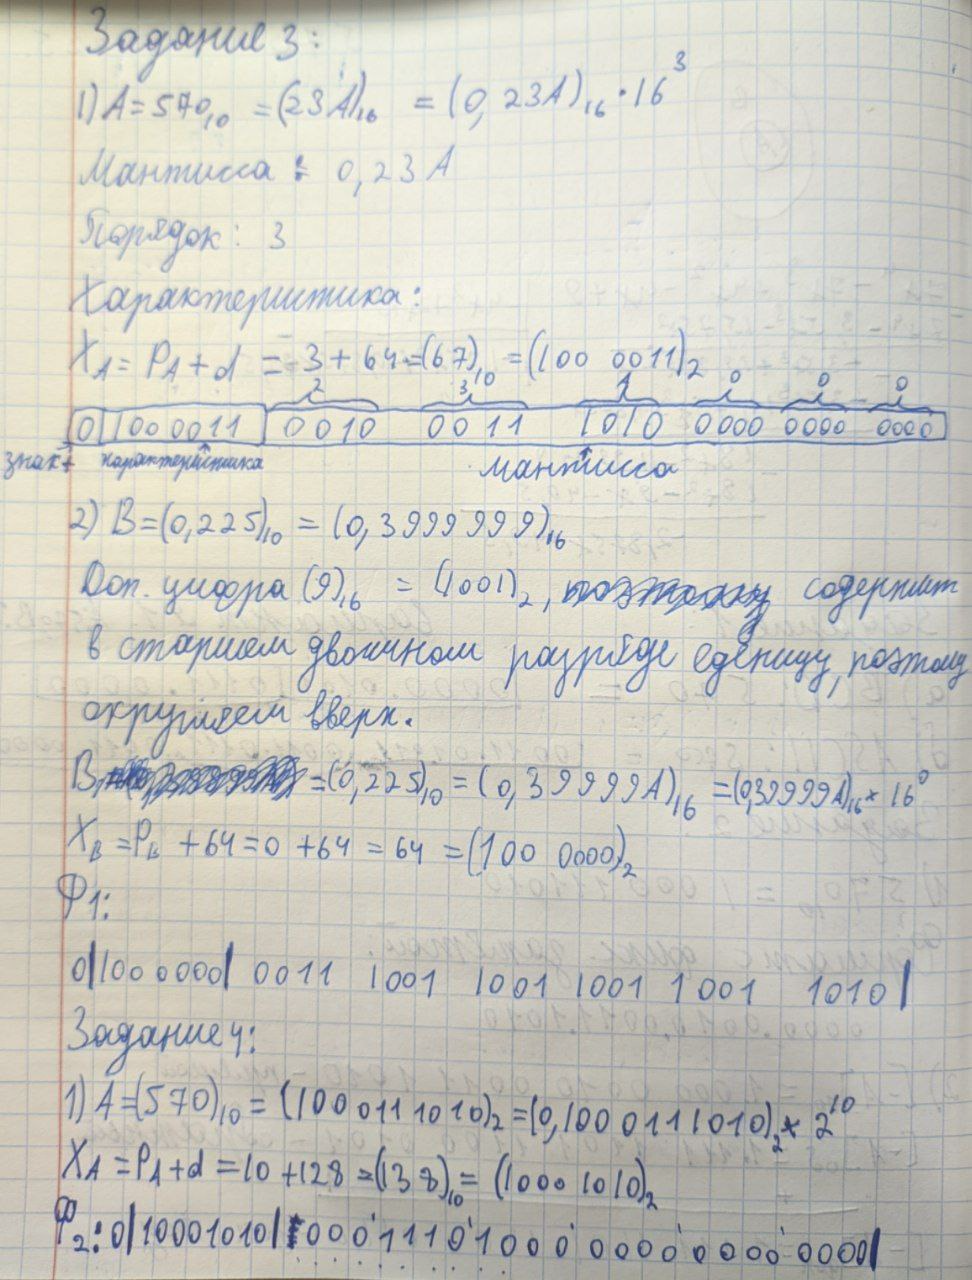 Задание 3:
1) A = 570₁₀ = (23A)₁₆ = (0,23A)₁₆ · 16³
Мантисса : 0,23A
Порядок: 3
Характеристика:
X_A = P_A + d = 3 + 64 = (67)₁₀ = (100 0011)₂
2 3 A 0 0 0
0 | 100 0011 | 0010 0011 1010 0000 0000 0000
знак + характеристика мантисса
2) B = (0,225)₁₀ = (0,3999999)₁₆
Доп. цифра (9)₁₆ = (1001)₂, содержит
в старшем двоичном разряде еденицу, поэтому
округляем вверх.
B = (0,225)₁₀ = (0,39999A)₁₆ = (0,39999A)₁₆ * 16⁰
X_B = P_B + 64 = 0 + 64 = 64 = (100 0000)₂
Ф1:
0|100 0000| 0011 1001 1001 1001 1001 1010|
Задание 4:
1) A = (570)₁₀ = (1000111010)₂ = (0,1000111010)₂ * 2¹⁰
X_A = P_A + d = 10 + 128 = (138)₁₀ = (1000 1010)₂
Ф₂: 0|10001010| 000111010000 0000 0000 000|